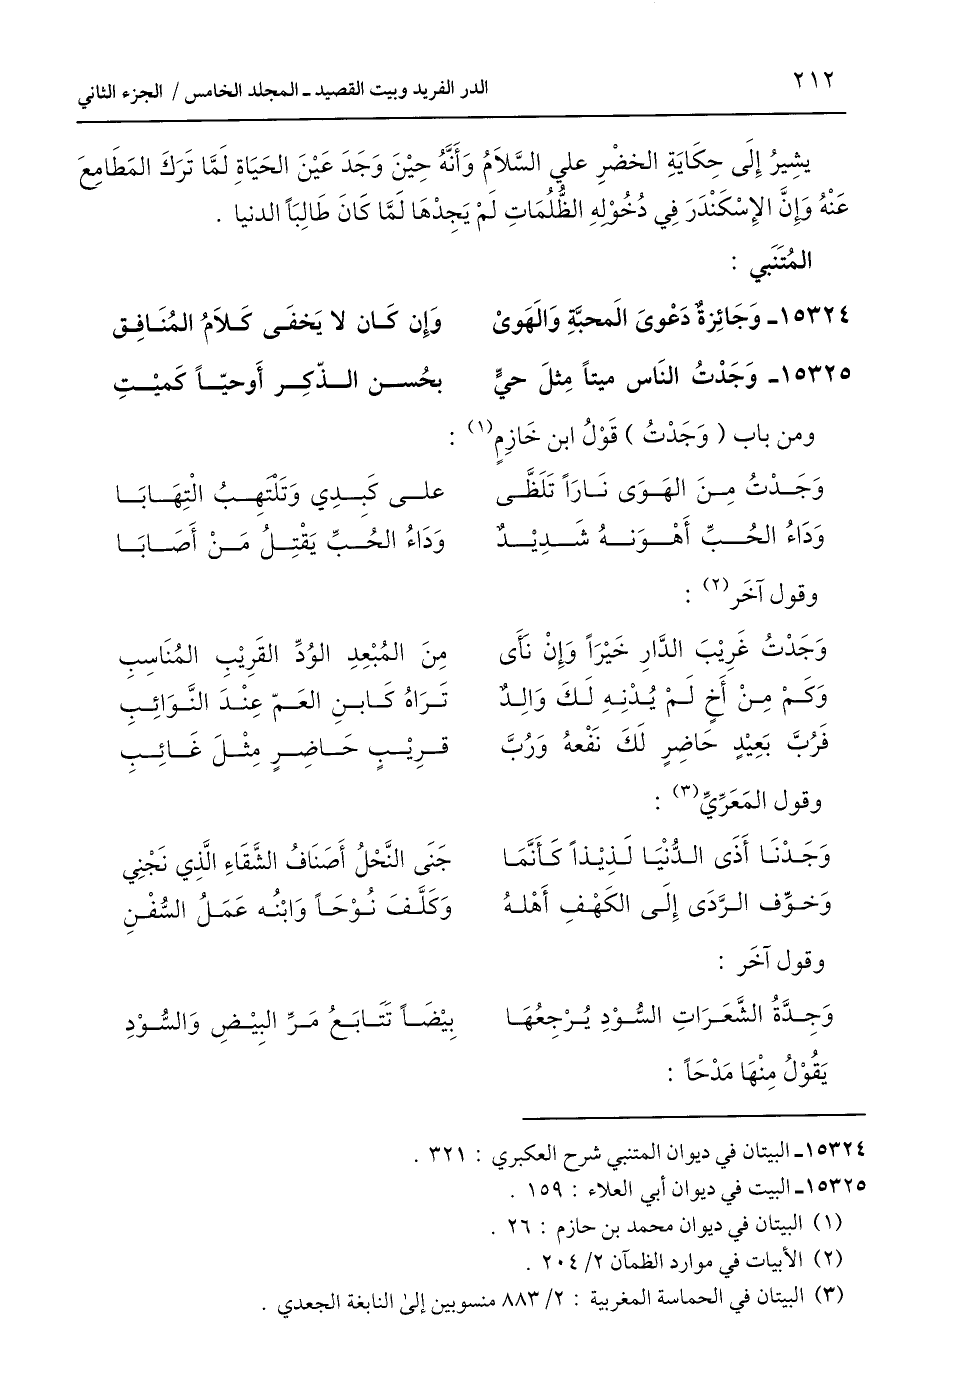 ٢١٢
الدر الفريد وبيت القصيد ـ المجلد الخامس / الجزء الثاني
يشِيرُ إِلَى حِكَايَةِ الخضْرِ علي السَّلاَمُ وَأَنَّهُ حِيْنَ وَجَدَ عَيْنَ الحَيَاةِ لَمَّا تَرَكَ المَطَامِعَ
عَنْهُ وَإِنَّ الإِسْكَنْدَرَ فِي دُخُوْلِهِ الظُّلُمَاتِ لَمْ يَجِدْهَا لَمَّا كَانَ طَالِبَاً الدنيا .
المُتَنَبي :
١٥٣٢٤ـ وَجَائِزةٌ دَعْوىَ المَحبَّةِ وَالهَوىْ وَإن كَـان لا يَخفَـى كَـلاَمُ المُنَـافِـق
١٥٣٢٥ـ وَجَدْتُ الناس ميتاً مِثلَ حيٍّ بحُســن الــذّكِــر أوحيّــاً كَميْــتِ
ومن باب ( وَجَدْتُ ) قَوْلُ ابن خَازِمٍ(١) :
وَجَــدْتُ مِــنَ الهَــوَى نَــارَاً تَلَظَّــى علــى كَبِــدِي وَتَلْتَهِــبُ الْتِهَــابَــا
وَدَاءُ الحُــبِّ أَهْــوَنــهُ شَــدِيْــدٌ وَدَاءُ الحُــبِّ يَقْتِــلُ مَــنْ أَصَــابَــا
وقول آخَر(٢) :
وَجَدْتُ غَرِيْبَ الدَّارِ خَيْرَاً وَإِنْ نَأَى مِنَ المُبْعِدِ الوُدِّ القَرِيْبِ المُنَاسِبِ
وَكَمْ مِنْ أَخٍ لَمْ يُدْنِهِ لَكَ وَالِدٌ تَـرَاهُ كَـابـنِ العَـمّ عِنْـدَ النَّـوَائِـبِ
فَرُبَّ بَعِيْدٍ حَاضِرٍ لَكَ نَفْعهُ وَرُبَّ قَـرِيْـبٍ حَـاضِـرٍ مِثْـلَ غَـائِـبِ
وقول المَعَرِّيِّ(٣) :
وَجَـدْنَـا أَذَى الـدُّنْيَـا لَـذِيْـذاً كَـأَنَّمَـا جَنَى النَّحْلُ أَصَنَافُ الشَّقَاءِ الَّذِي نَجْنِي
وَخـوِّف الـرَّدَى إِلَـى الكَهْـفِ أَهْلـهُ وَكَلَّـفَ نُـوْحَـاً وَابْنُـه عَمَـلُ السُّفْـنِ
وقول آخَر :
وَجِـدَّةُ الشَّعَـرَاتِ السُّـوْدِ يُـرْجِعُهَـا بِيْضَـاً تَتَـابَـعُ مَـرِّ البِيْـضِ وَالسُّـوْدِ
يَقُوْلُ مِنْهَا مَدْحَاً :
١٥٣٢٤ـ البيتان في ديوان المتنبي شرح العكبري : ٣٢١ .
١٥٣٢٥ـ البيت في ديوان أبي العلاء : ١٥٩ .
(١) البيتان في ديوان محمد بن حازم : ٢٦ .
(٢) الأبيات في موارد الظمآن ٢/ ٢٠٤ .
(٣) البيتان في الحماسة المغربية : ٢/ ٨٨٣ منسوبين إلى النابغة الجعدي .